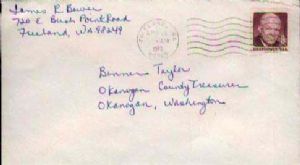 James R. Bower
720 E. Bush Point Road
Freeland, WA 98249
Benner Taylor
Okanogan County Treasurer
Okanogan, Washington